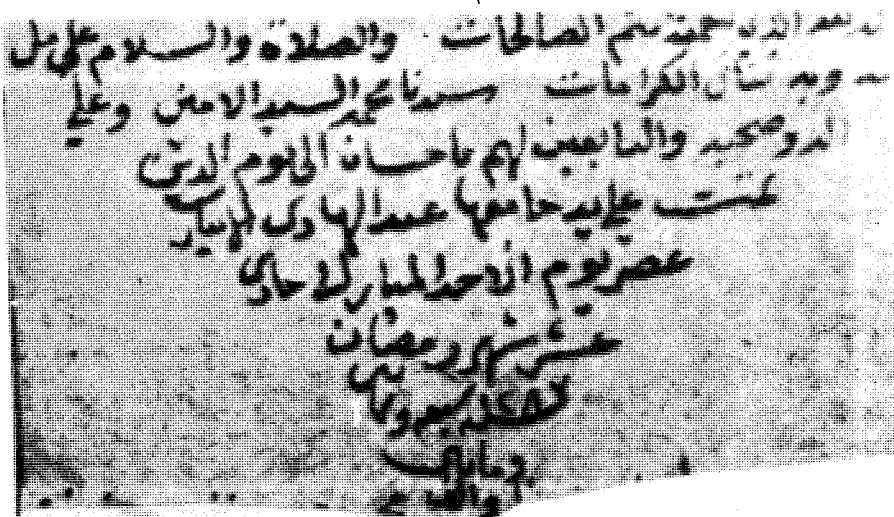 بنعمته تتم الصالحات والصلاة والسلام على من
وبه تنال الكرامات سيدنا محمد السيد الامين وعلى
اله وصحبه والتابعين لهم باحسان الى يوم الدين
تمت على يد جامعها عبد الهادي
عصر يوم الاحد المبارك حادي
عشر شهر رمضان
سبع وثمانين
ومايتين
والف